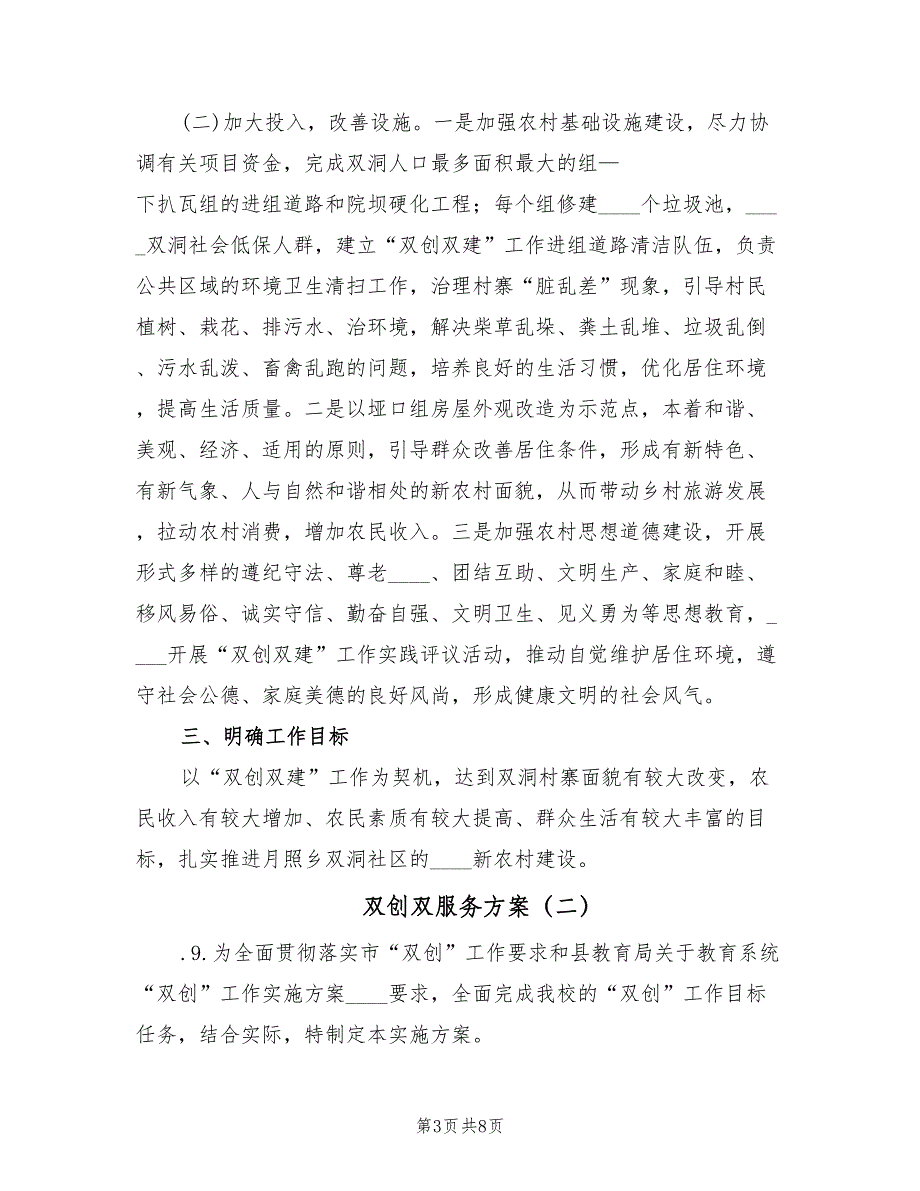 (二)加大投入，改善设施。一是加强农村基础设施建设，尽力协
调有关项目资金，完成双洞人口最多面积最大的组—
下扒瓦组的进组道路和院坝硬化工程；每个组修建____个垃圾池，___
_双洞社会低保人群，建立“双创双建”工作进组道路清洁队伍，负责
公共区域的环境卫生清扫工作，治理村寨“脏乱差”现象，引导村民
植树、栽花、排污水、治环境，解决柴草乱垛、粪土乱堆、垃圾乱倒
、污水乱泼、畜禽乱跑的问题，培养良好的生活习惯，优化居住环境
，提高生活质量。二是以垭口组房屋外观改造为示范点，本着和谐、
美观、经济、适用的原则，引导群众改善居住条件，形成有新特色、
有新气象、人与自然和谐相处的新农村面貌，从而带动乡村旅游发展
，拉动农村消费，增加农民收入。三是加强农村思想道德建设，开展
形式多样的遵纪守法、尊老____、团结互助、文明生产、家庭和睦、
移风易俗、诚实守信、勤奋自强、文明卫生、见义勇为等思想教育，_
___开展“双创双建”工作实践评议活动，推动自觉维护居住环境，遵
守社会公德、家庭美德的良好风尚，形成健康文明的社会风气。
三、明确工作目标
以“双创双建”工作为契机，达到双洞村寨面貌有较大改变，农
民收入有较大增加、农民素质有较大提高、群众生活有较大丰富的目
标，扎实推进月照乡双洞社区的____新农村建设。
双创双服务方案（二）
.9.为全面贯彻落实市“双创”工作要求和县教育局关于教育系统
“双创”工作实施方案____要求，全面完成我校的“双创”工作目标
任务，结合实际，特制定本实施方案。
第3页 共8页